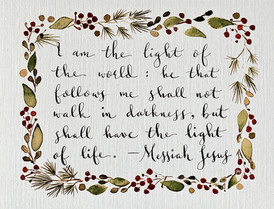 I am the light of
the world : he that
follows me shall not
walk in darkness, but
shall have the light
of life. —Messiah Jesus